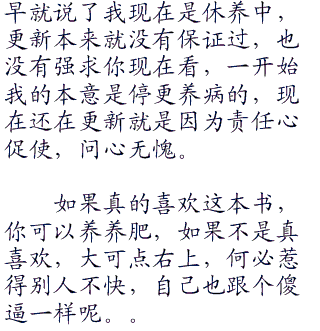 早就说了我现在是休养中，
更新本来就没有保证过，也
没有强求你现在看，一开始
我的本意是停更养病的，现
在还在更新就是因为责任心
促使，问心无愧。
如果真的喜欢这本书，
你可以养养肥，如果不是真
喜欢，大可点右上，何必惹
得别人不快，自己也跟个傻
逼一样呢。。